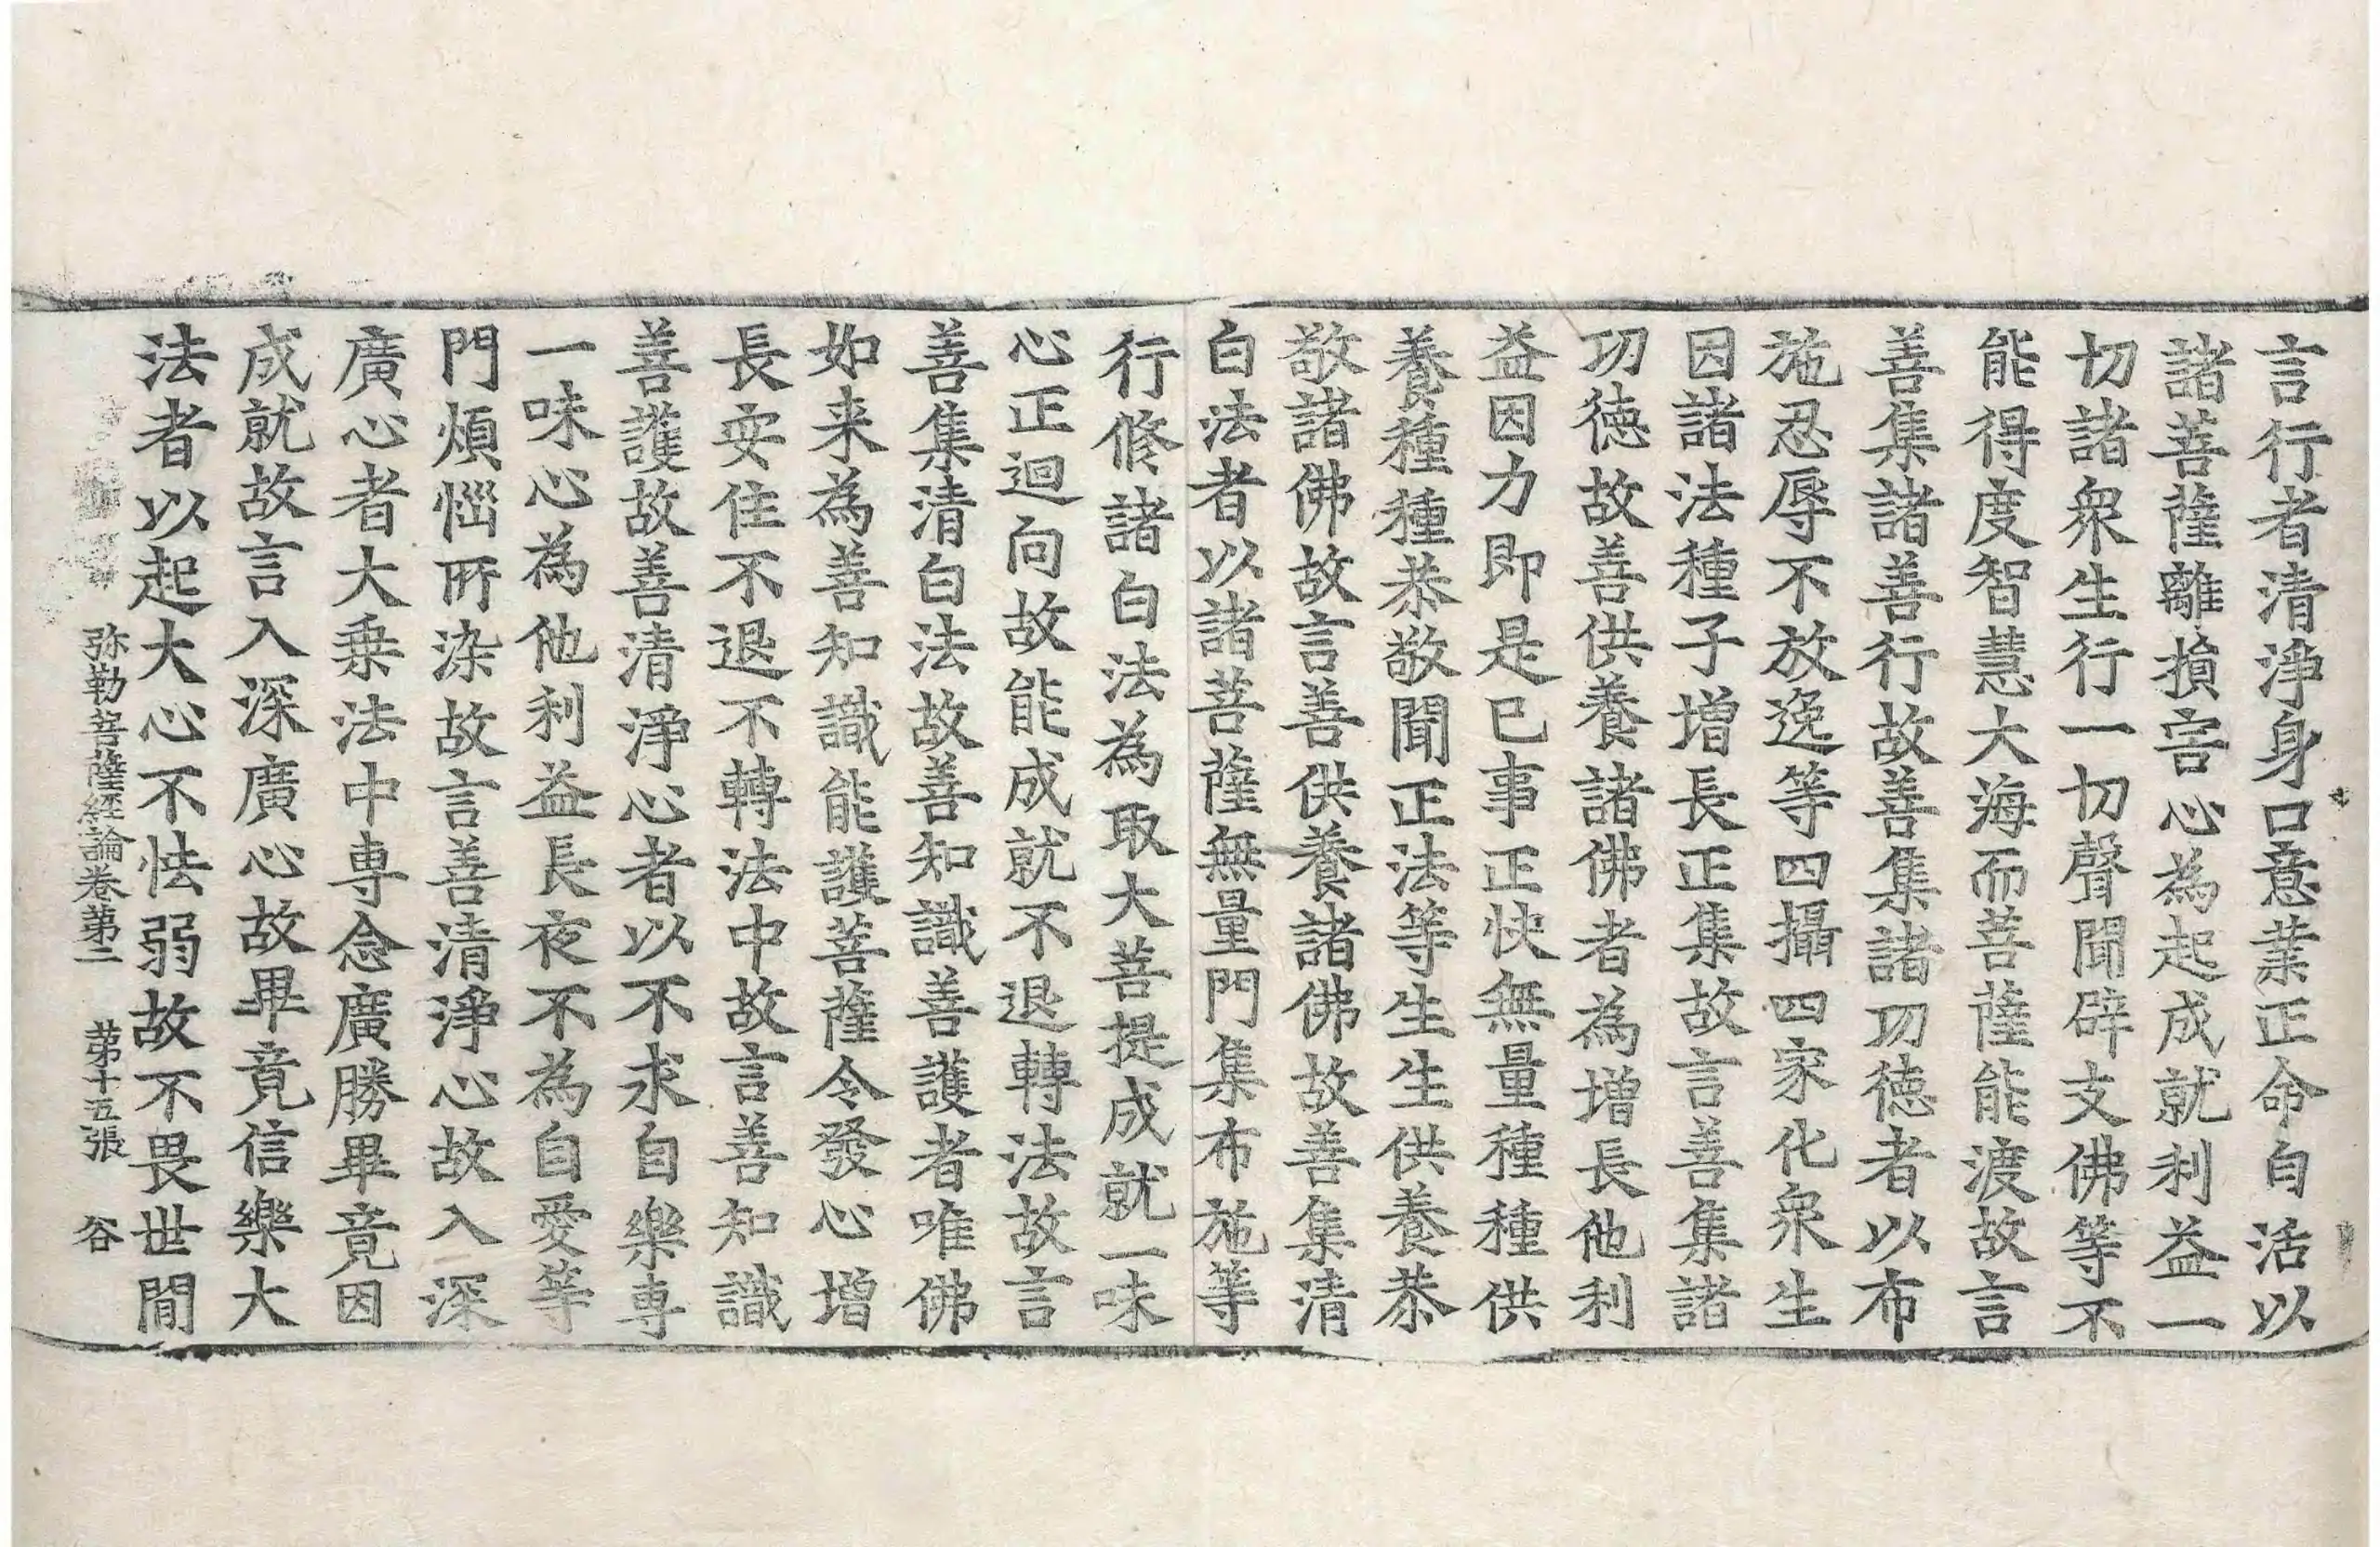 言行者清淨身口意業正命自活以
諸菩薩離損害心為起成就利益一
切諸衆生行一切聲聞辟支佛等不
能得度智慧大海而菩薩能渡故言
善集諸善行故善集諸功德者以布
施忍辱不放逸等四攝四家化衆生
因諸法種子增長正集故言善集諸
功德故善供養諸佛者為增長他利
益因力即是已事正快無量種種供
養種種恭敬聞正法等生生供養恭
敬諸佛故言善供養諸佛故善集清
白法者以諸菩薩無量門集布施等
行修諸白法為取大菩提成就一味
心正迴向故能成就不退轉法故言
善集清白法故善知識善護者唯佛
如来為善知識能護菩薩令發心增
長安住不退不轉法中故言善知識
善護故善清淨心者以不求自樂専
一味心為他利益長夜不為自愛等
門煩惱所染故言善清淨心故入深
廣心者大乗法中専念廣勝畢竟因
成就故言入深廣心故畢竟信樂大
法者以起大心不怯弱故不畏世間
弥勒菩薩經論卷第二 第十五張 谷